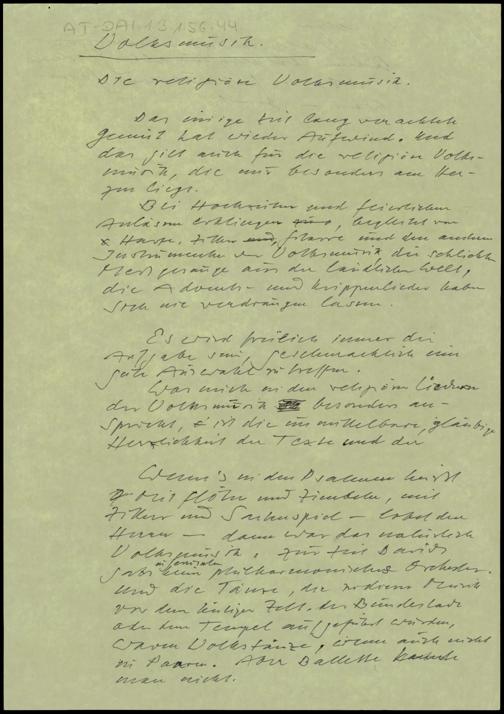 AT-DAI 1.3.1.56.44
Volksmusik.
Die religiöse Volksmusik.
Das einige Zeit lang verachtete
Gemüt hat wieder Aufwind. Und
das gilt auch für die religiöse Volks-
musik, die mir besonders am Her-
zen liegt.
Bei Hochzeiten und feierlichen
Anlässen erklingen, begleitet von
Harfe, Zither, Gitarre und den anderen
Instrumenten der Volksmusik die schlichten
Messgesänge aus der ländlichen Welt,
die Advents- und Krippenlieder haben
sich nie verdrängen lassen.
Es wird freilich immer die
Aufgabe sein, geschmacklich eine
gute Auswahl zu treffen.
Was mich in den religiösen Liedern
der Volksmusik besonders an-
spricht, ist die unmittelbare, gläubige
Herzlichkeit der Texte und der
Wenn's in den Psalmen heißt
Mit Flöten und Zimbeln, mit
Zither und Saitenspiel – lobet den
Herrn – dann war das natürlich
Volksmusik. Zur Zeit Davids
gab's kein philharmonisches Orchester.
Und die Tänze, die
vor dem heiligen Zelt, der Bundeslade
oder dem Tempel aufgeführt wurden,
waren Volkstänze, wenn auch nicht
in Paaren. Aber Ballette kannte
man nicht.